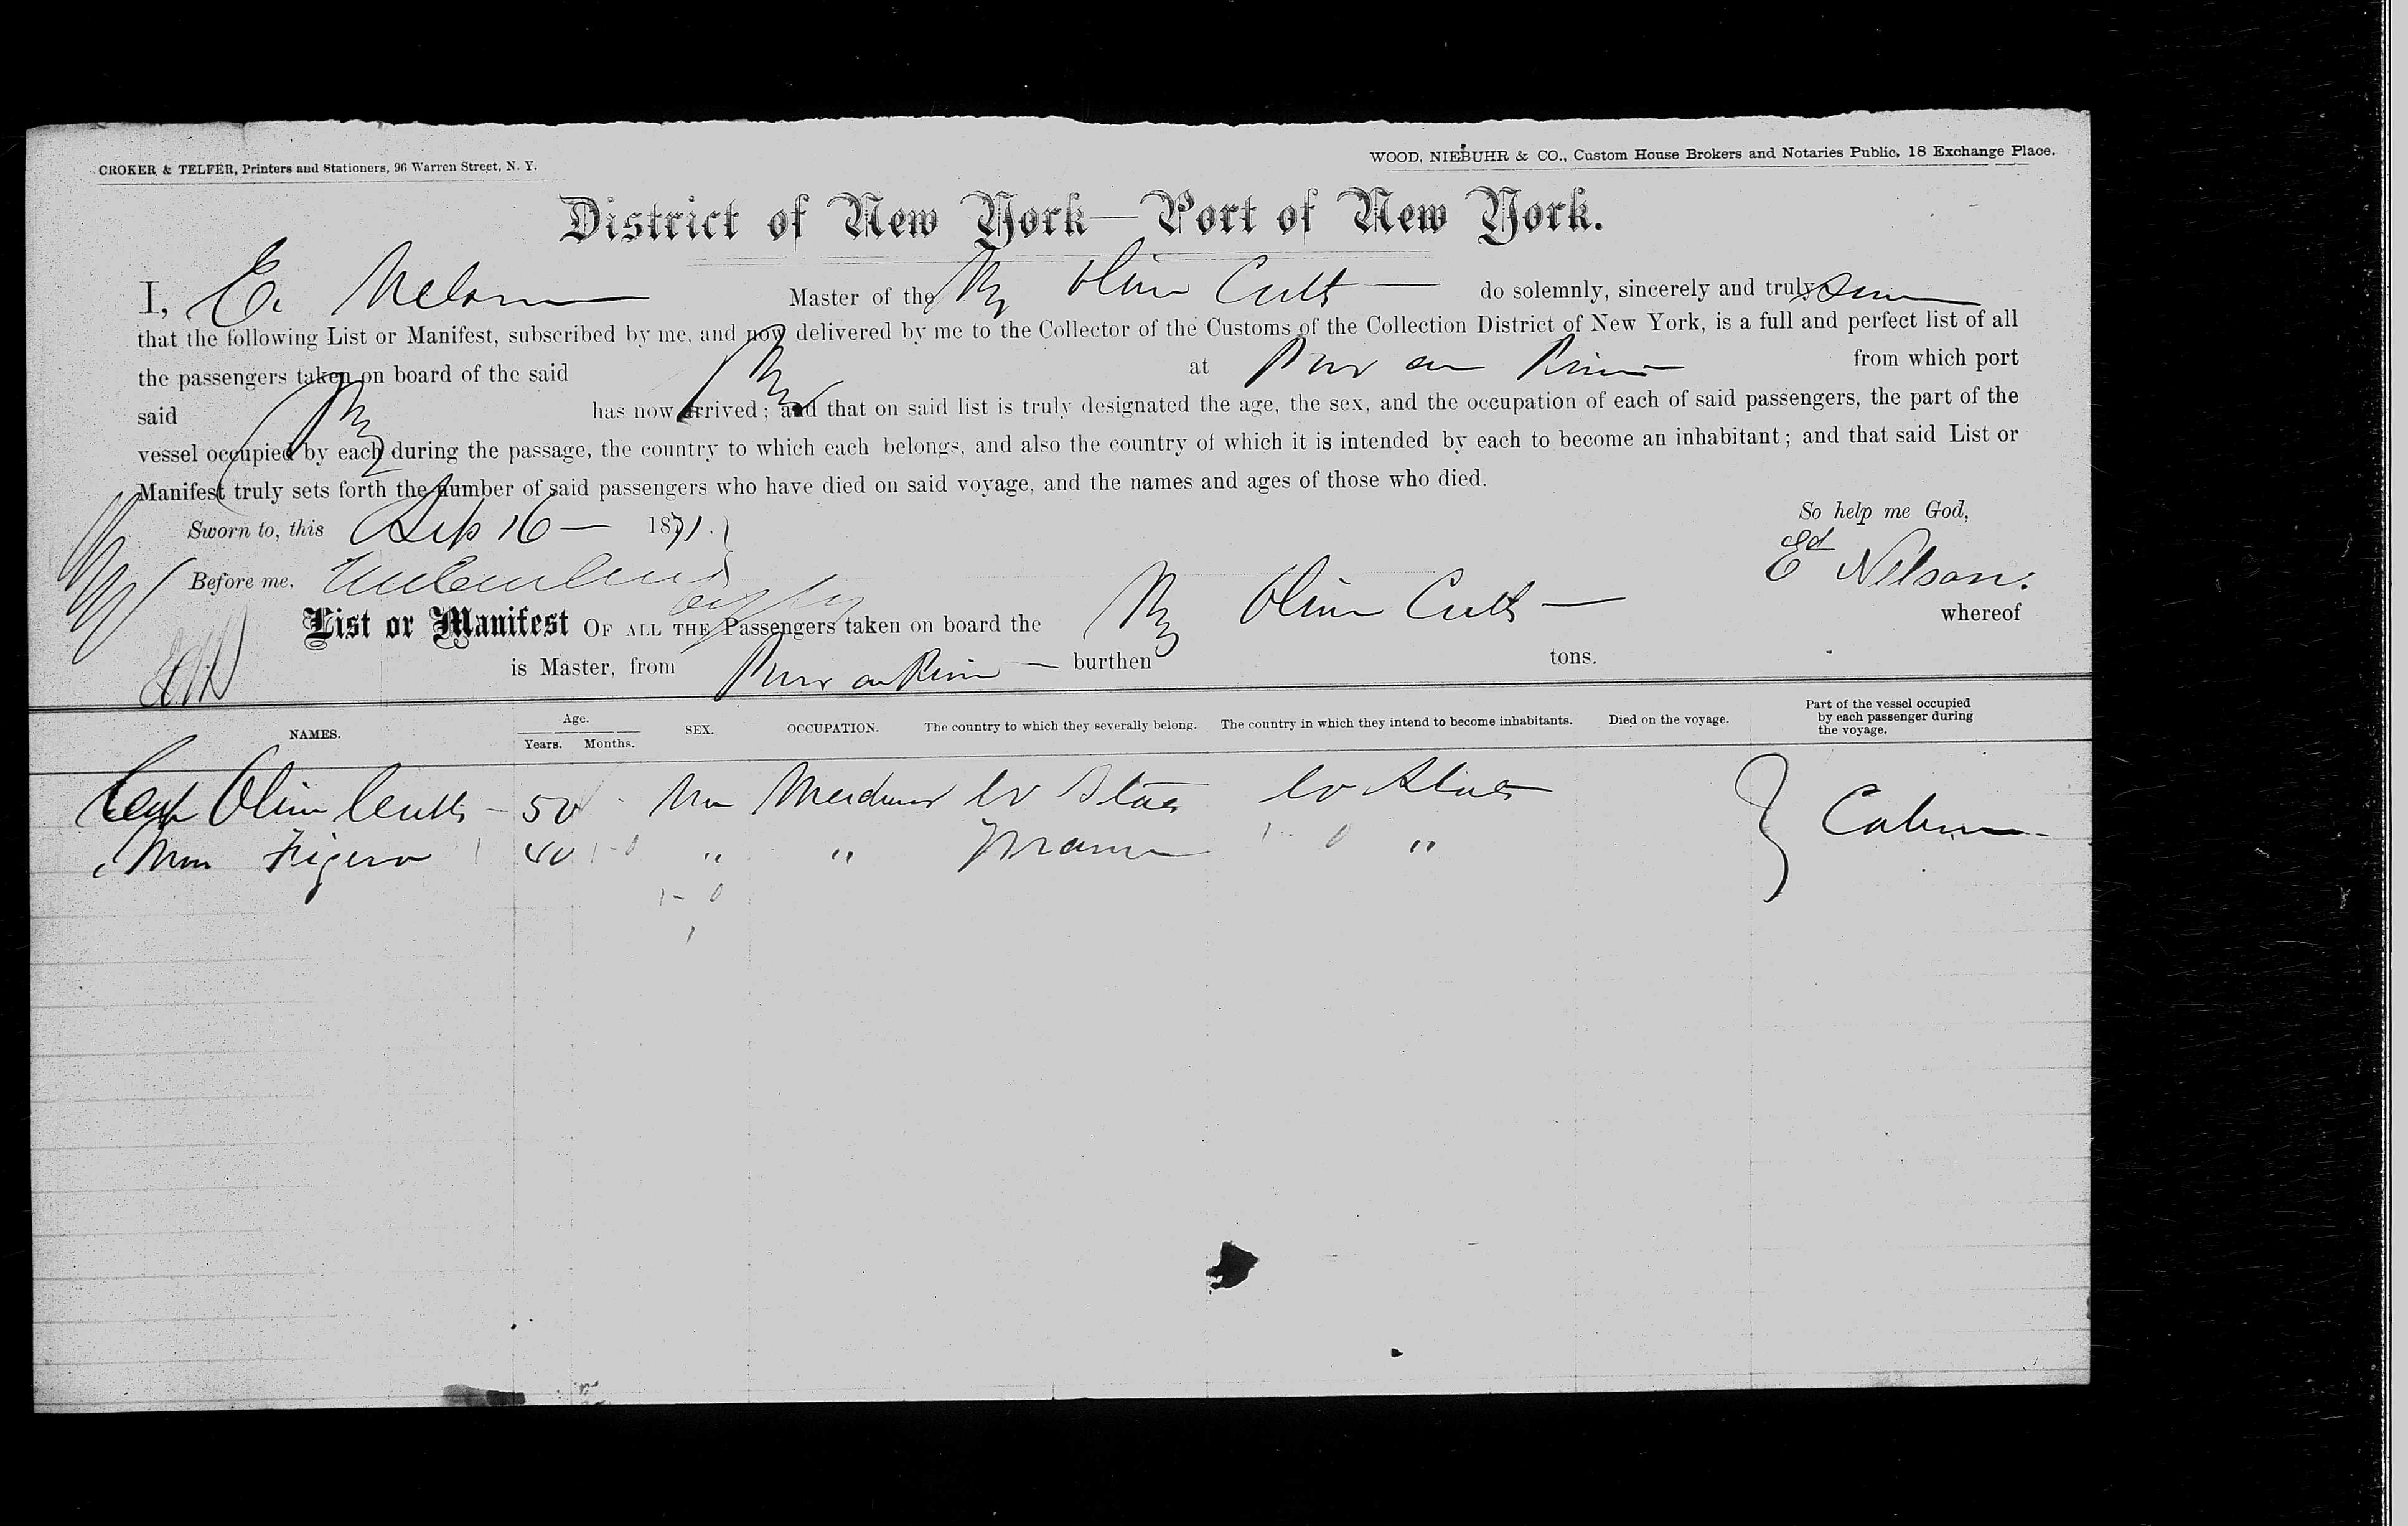 CROKER & TELFER, Printers and Stationers, 96 Warren Street, N. Y.
WOOD, NIEBUHR & CO., Custom House Brokers and Notaries Public, 18 Exchange Place.
District of New York—Port of New York.
I, E. Nelson Master of the Olive Cutts do solemnly, sincerely and truly
that the following List or Manifest, subscribed by me, and now delivered by me to the Collector of the Customs of the Collection District of New York, is a full and perfect list of all
the passengers taken on board of the said at from which port
said has now arrived; and that on said list is truly designated the age, the sex, and the occupation of each of said passengers, the part of the
vessel occupied by each during the passage, the country to which each belongs, and also the country of which it is intended by each to become an inhabitant; and that said List or
Manifest truly sets forth the number of said passengers who have died on said voyage, and the names and ages of those who died.
Sworn to, this Sep 16 — 1871. So help me God,
Before me, Ed Nelson.
List or Manifest OF ALL THE Passengers taken on board the whereof
is Master, from burthen tons.
NAMES. Age. Years. Months. SEX. OCCUPATION. The country to which they severally belong. The country in which they intend to become inhabitants. Died on the voyage. Part of the vessel occupied by each passenger during the voyage.
Capt 50 U States U States Cabin
40 " " France "